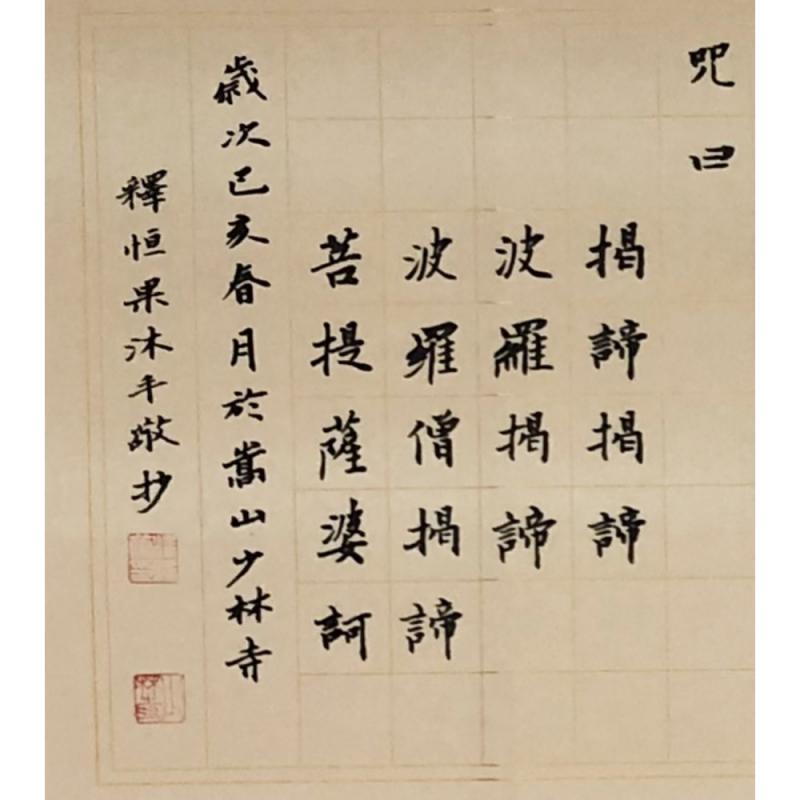 咒曰
揭諦揭諦
波羅揭諦
波羅僧揭諦
菩提薩婆訶
歲次己亥春月於嵩山少林寺
釋恒果沐手敬抄